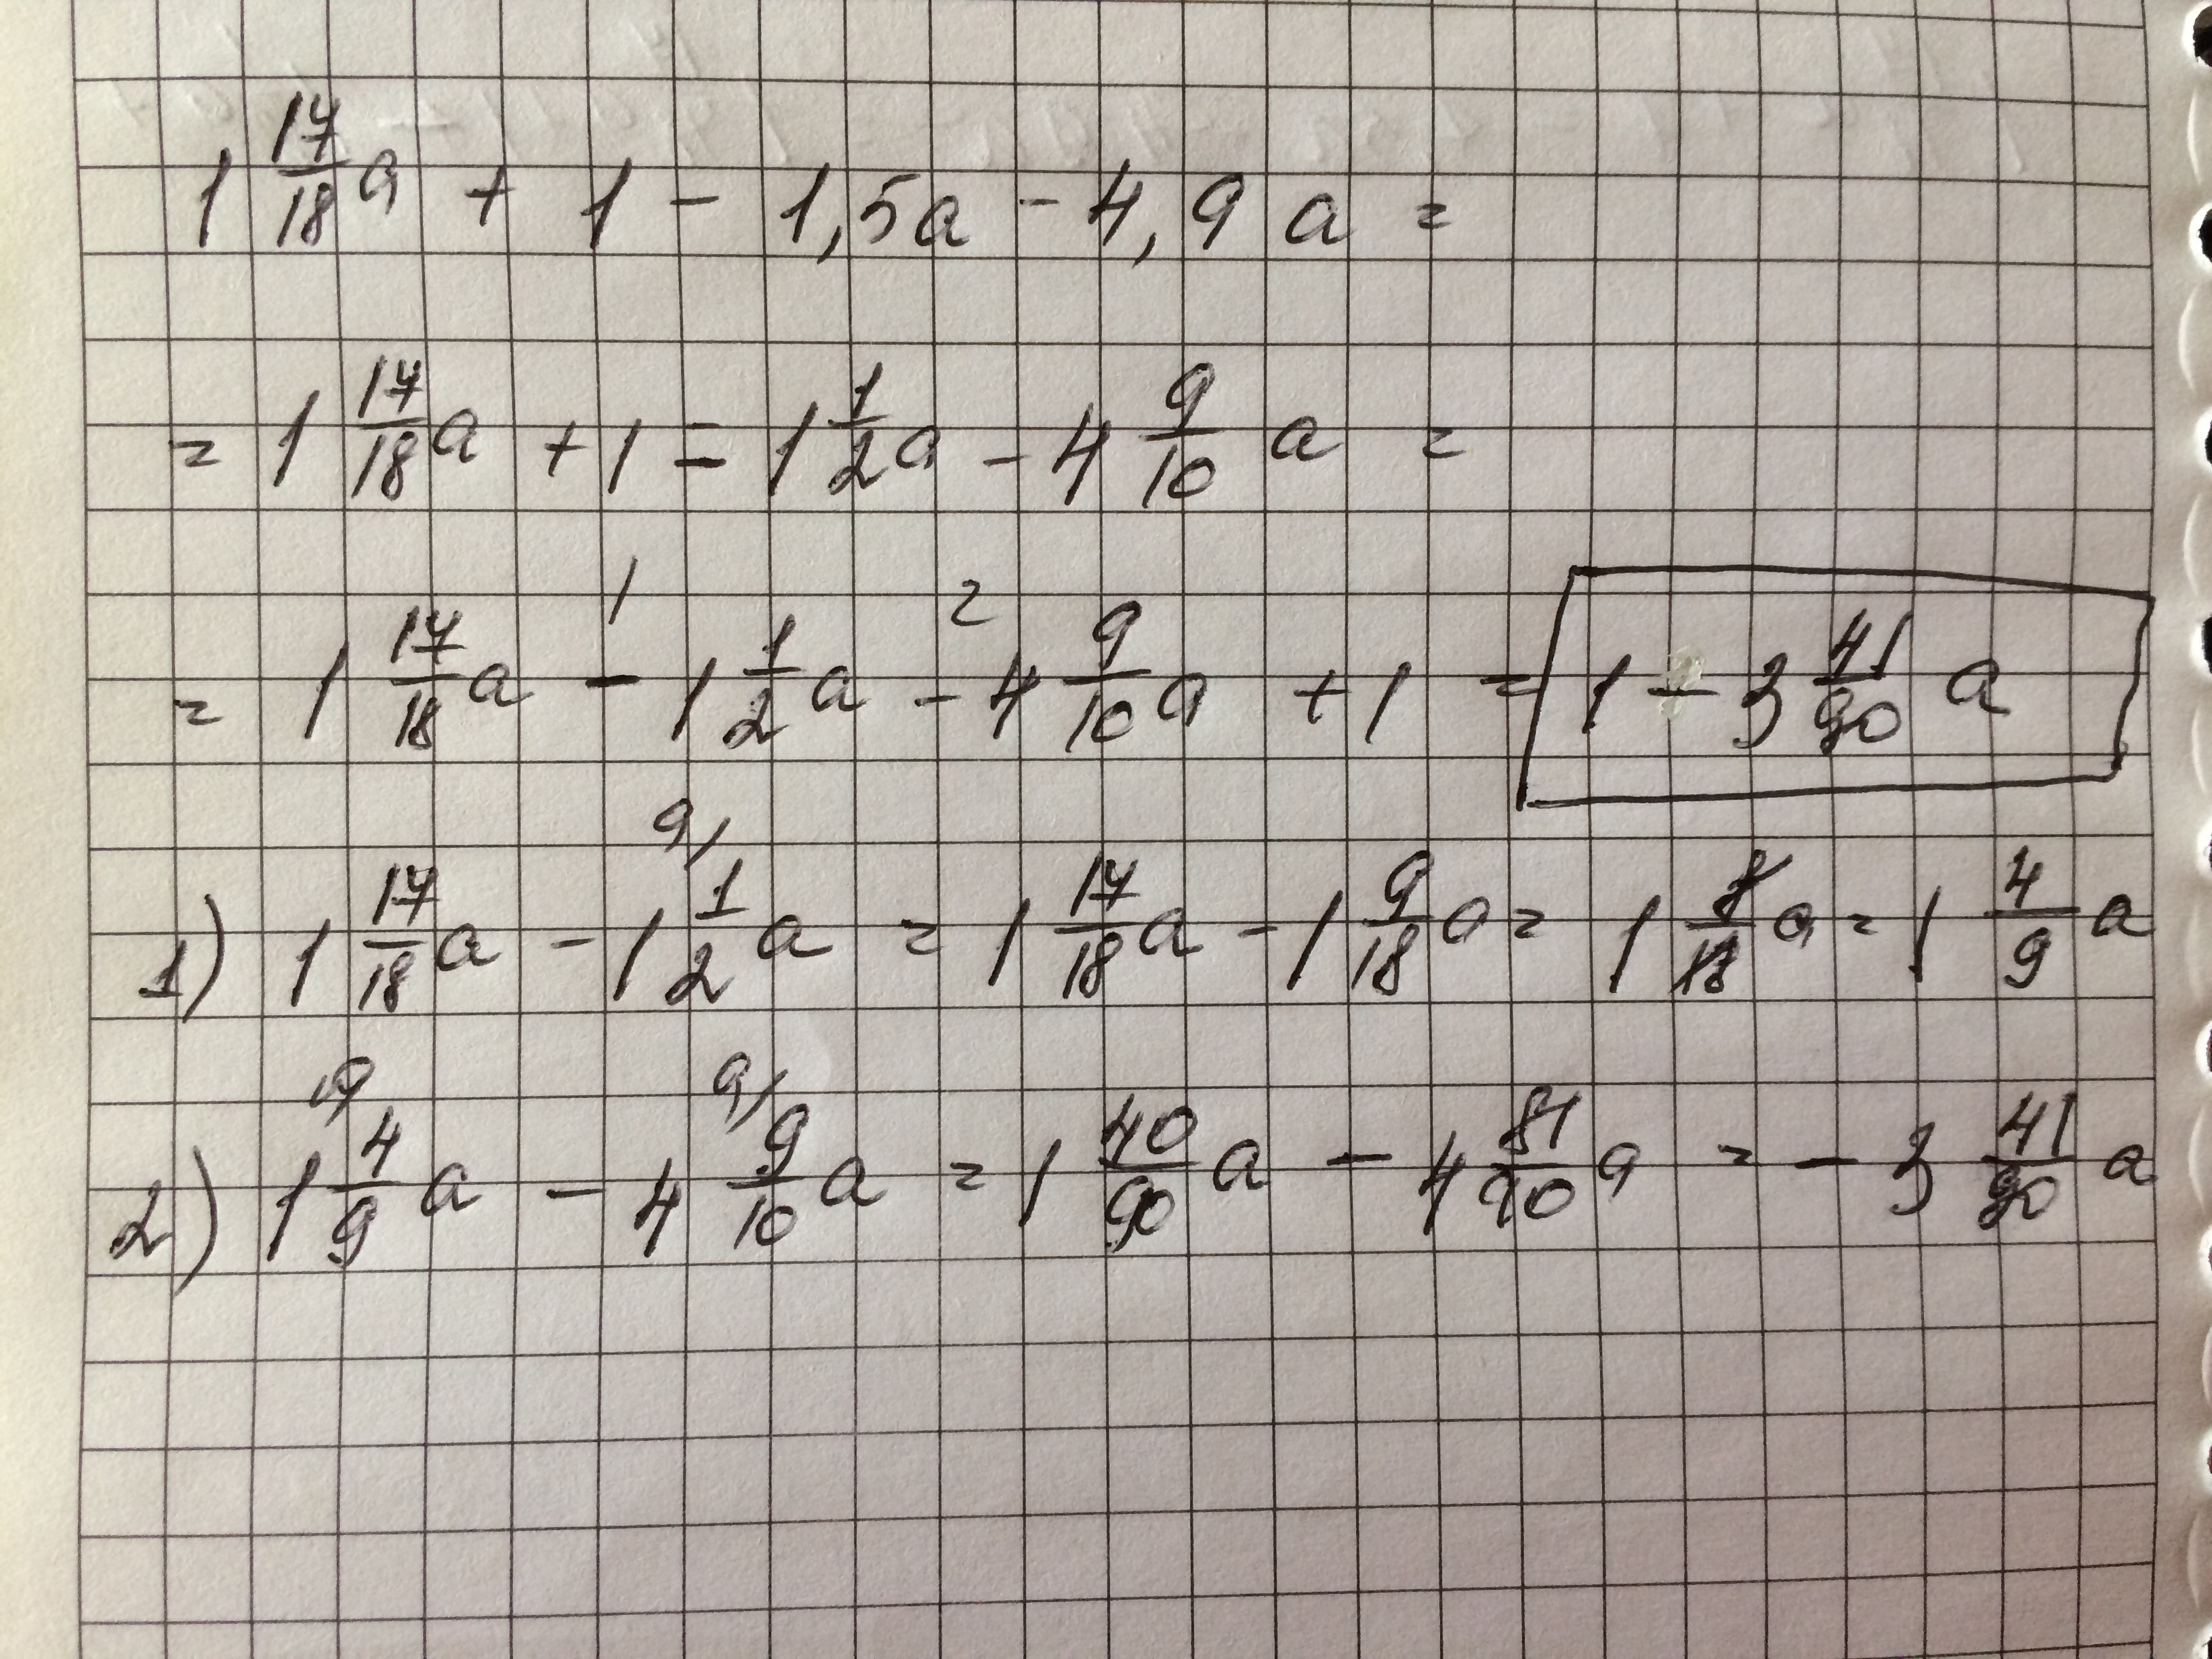 1 17/18 a + 1 - 1,5a - 4,9 a =
= 1 17/18 a + 1 - 1 1/2 a - 4 9/10 a =
1 2
= 1 17/18 a - 1 1/2 a - 4 9/10 a + 1 = 1 - 3 41/90 a
9/
1) 1 17/18 a - 1 1/2 a = 1 17/18 a - 1 9/18 a = 1 8/18 a = 1 4/9 a
10/ 9/
2) 1 4/9 a - 4 9/10 a = 1 40/90 a - 4 81/90 a = - 3 41/90 a